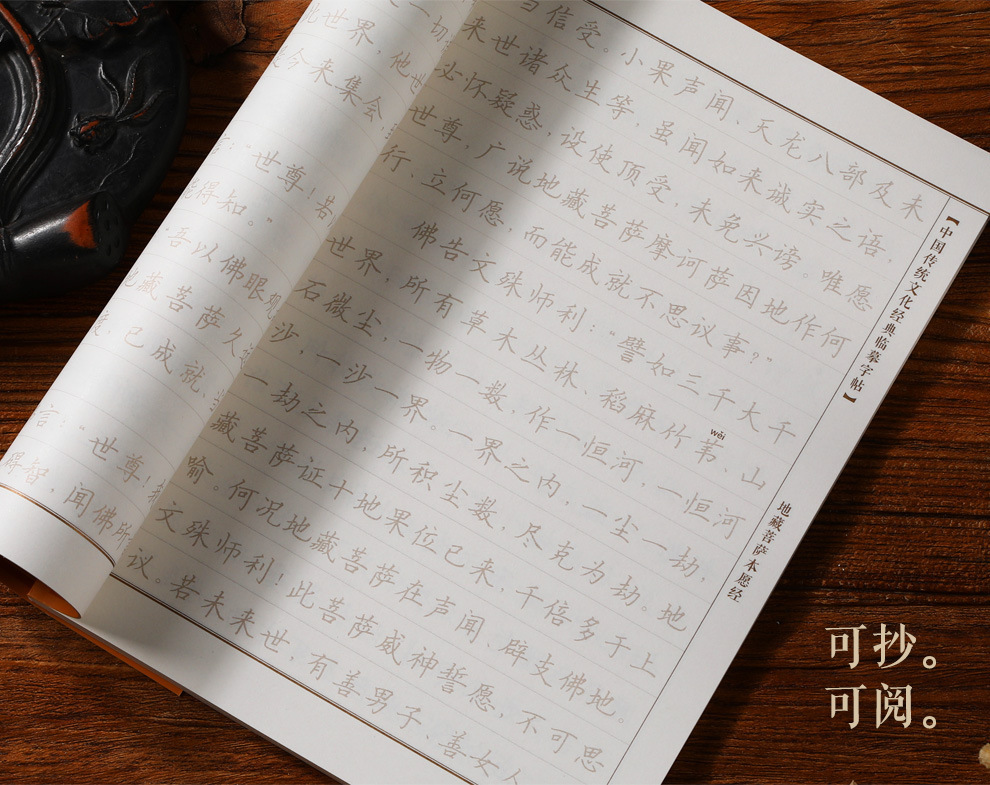 一切
此世界，他世
今来集会
“世尊！若
能得知。”
“吾以佛眼观
地藏菩萨久
，已成就、
言：“世尊！
得智，闻佛所
当信受。小果声闻、天龙八部及未
来世诸众生等，虽闻如来诚实之语，
必怀疑惑，设使顶受，未免兴谤。唯愿
世尊，广说地藏菩萨摩诃萨因地作何
行、立何愿，而能成就不思议事？”
佛告文殊师利：“譬如三千大千
世界，所有草木丛林、稻麻竹苇、山
wěi
石微尘，一物一数，作一恒河，一恒河
沙，一沙一界。一界之内，一尘一劫，
一劫之内，所积尘数，尽充为劫。地
藏菩萨证十地果位已来，千倍多于上
喻。何况地藏菩萨在声闻、辟支佛地。
文殊师利！此菩萨威神誓愿，不可思
议。若未来世，有善男子、善女人
【中国传统文化经典临摹字帖】
地藏菩萨本愿经
可抄。
可阅。